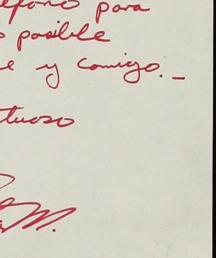 éfono para
o posible
e y comigo._
tuoso